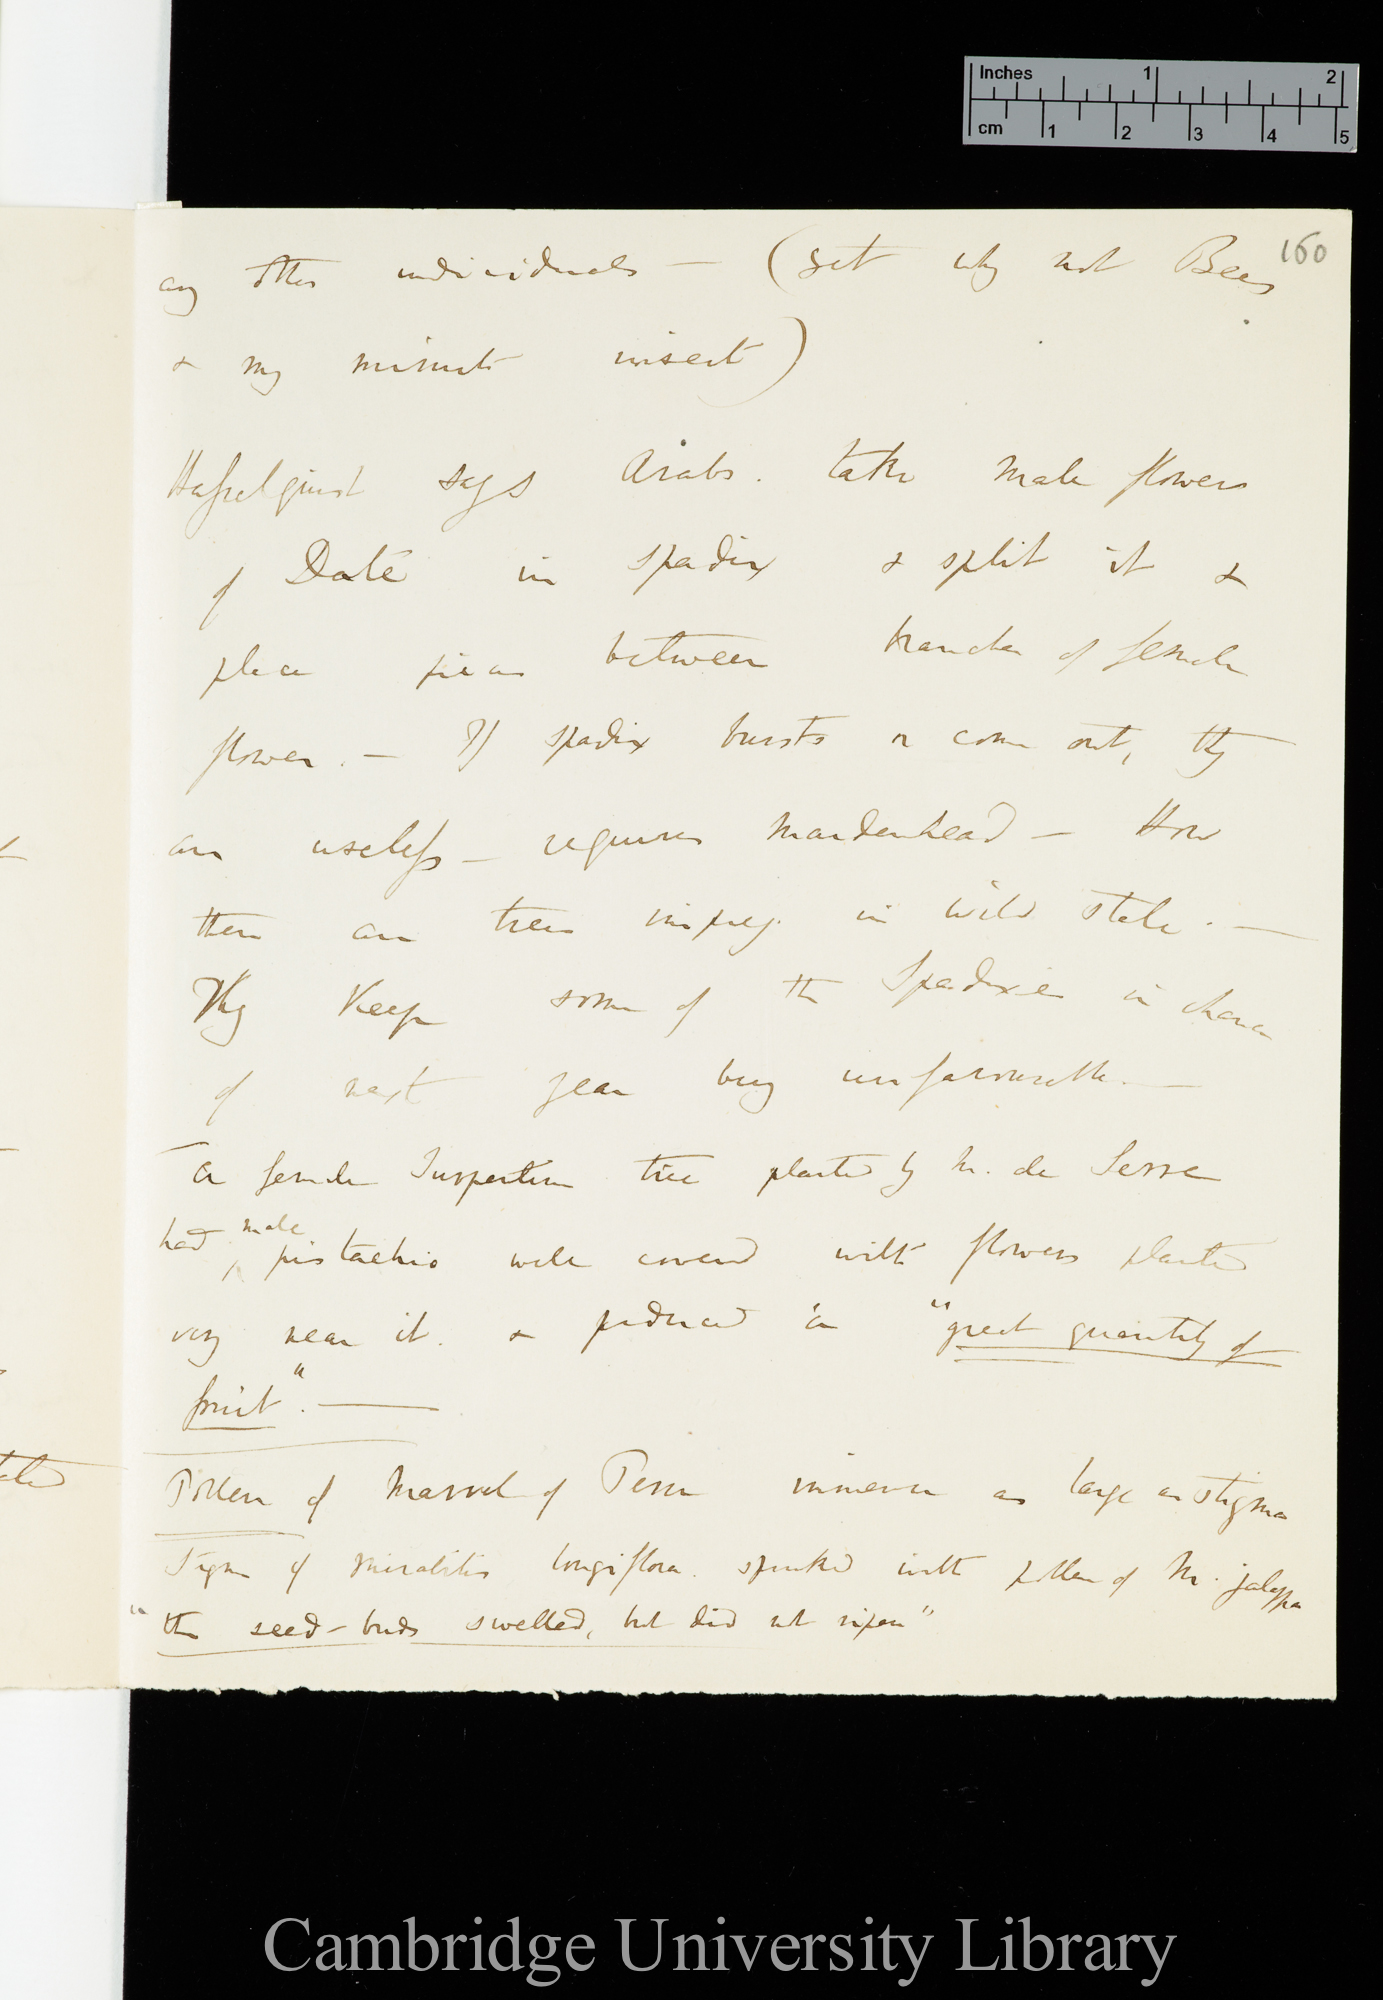 Inches 1 2
cm 1 2 3 4 5
160
any other individuals — (yet why not Bees
& my minute insect)
Hasselquist says Arabs. take male flowers
of Date in spadix & split it &
place pieces between branches of female
flower. — If spadix bursts or come out, they
are useless — requires maidenhead — How
then are trees impreg. in wild state. —
They keep some of the Spadixes in chance
of next year being unfavourable. —
A female Turpentine tree planted by M. de Serre
had male pistachio well covered with flowers planted
very near it. & produced a "great quantity of
fruit". —
Pollen of Marvel of Peru immense as large as stigma
Stigma of Mirabilis longiflora. sprinkled with pollen of M. jalappa
"the seed-buds swelled, but did not ripen"
Cambridge University Library